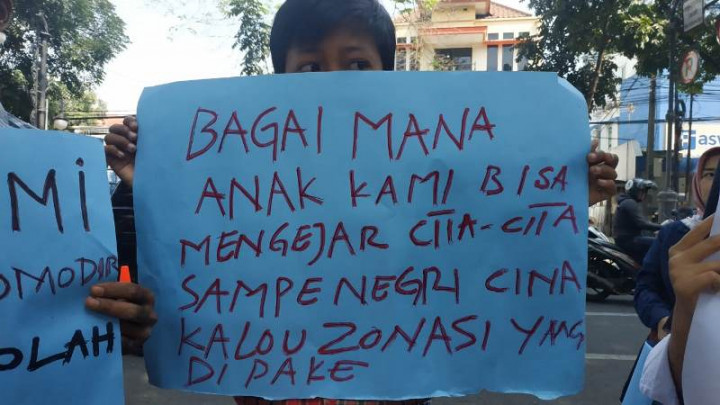 BAGAI MANA
ANAK KAMI BISA
MENGEJAR CITA-CITA
SAMPE NEGRI CINA
KALOU ZONASI YANG
DI PAKE
MI
OMODIR
OLAH